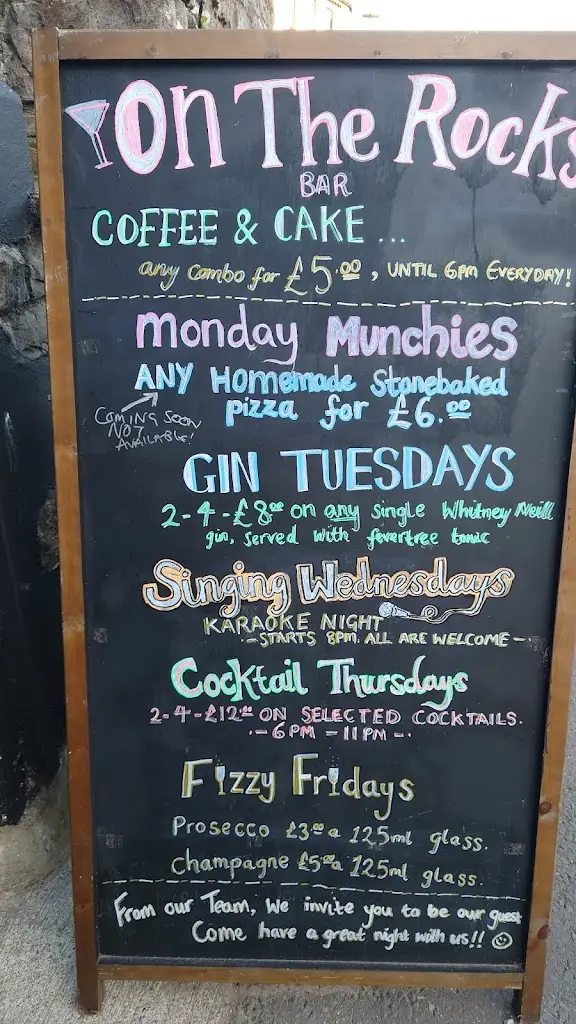 On The Rocks
BAR
COFFEE & CAKE ...
any combo for £5.00, UNTIL 6pm EVERYDAY!
Monday Munchies
ANY Homemade Stonebaked
pizza for £6.00
COMING SOON
NOT
AVAILABLE!
GIN TUESDAYS
2-4-£8.00 on any single Whitney Neill
gin, served with fevertree tonic
Singing Wednesdays
KARAOKE NIGHT
-STARTS 8PM. ALL ARE WELCOME-
Cocktail Thursdays
2-4-£12.00 ON SELECTED COCKTAILS.
-6PM-11PM-
Fizzy Fridays
Prosecco £3.00 a 125ml glass.
Champagne £5.00 a 125ml glass.
From our Team, We invite you to be our guest
Come have a great night with us!!